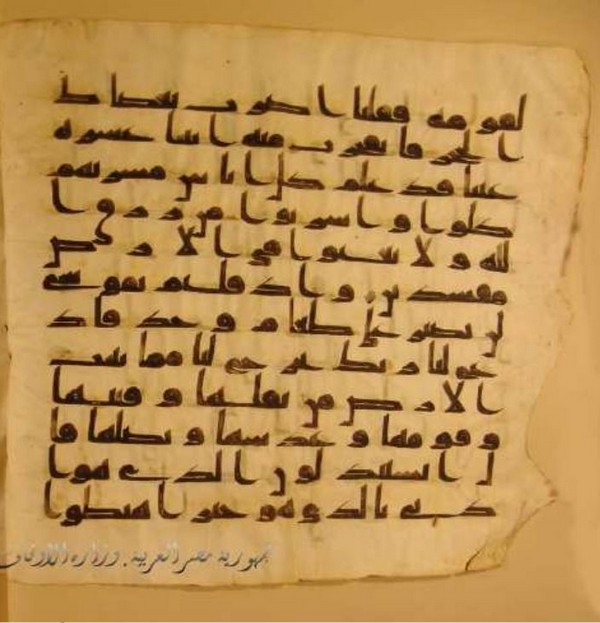 لقومه فقلنا اضرب بعصاك
الحجر فانفجرت منه اثنتا عشره
عينا قد علم كل اناس مشربهم
كلوا واشربوا من رزق ا
لله ولا تعثوا في الارض
مفسدين واذ قلتم يموسى
لن نصبر على طعام وحد فاد
ع لنا ربك يخرج لنا مما تنبت
الارض من بقلها وقثىها
وفومها وعدسها وبصلها قا
ل اتستبدلون الذي هو ا
دنى بالذي هو خير اهبطوا
جمهورية مصر العربية . وزارة الأوقاف